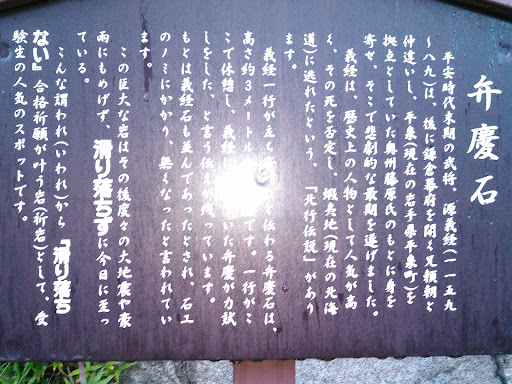 弁慶石
平安時代末期の武将、源義経(一一五九
～八九)は、後に鎌倉幕府を開く兄頼朝と
仲違いし、平泉(現在の岩手県平泉町)を
拠点としていた奥州藤原氏のもとに身を
寄せ、そこで悲劇的な最期を遂げました。
義経は、歴史上の人物として人気が高
く、その死を否定し、蝦夷地(現在の北海
道)に逃れたという、「北行伝説」があり
ます。
義経一行が立ち寄 伝わる弁慶石は、
高さ約3メートル です。一行がこ
こで休憩し、義経に いた弁慶が力試
しをした、と言う伝 が残っています。
もとは義経石も並んであったとされ、石工
のノミにかかり、無くなったと言われてい
ます。
この巨大な岩はその後度々の大地震や豪
雨にもめげず、滑り落ちずに今日に至っ
ている。
こんな謂われ(いわれ)から「滑り落ち
ない」合格祈願が叶う岩(祈岩)として、受
験生の人気のスポットです。